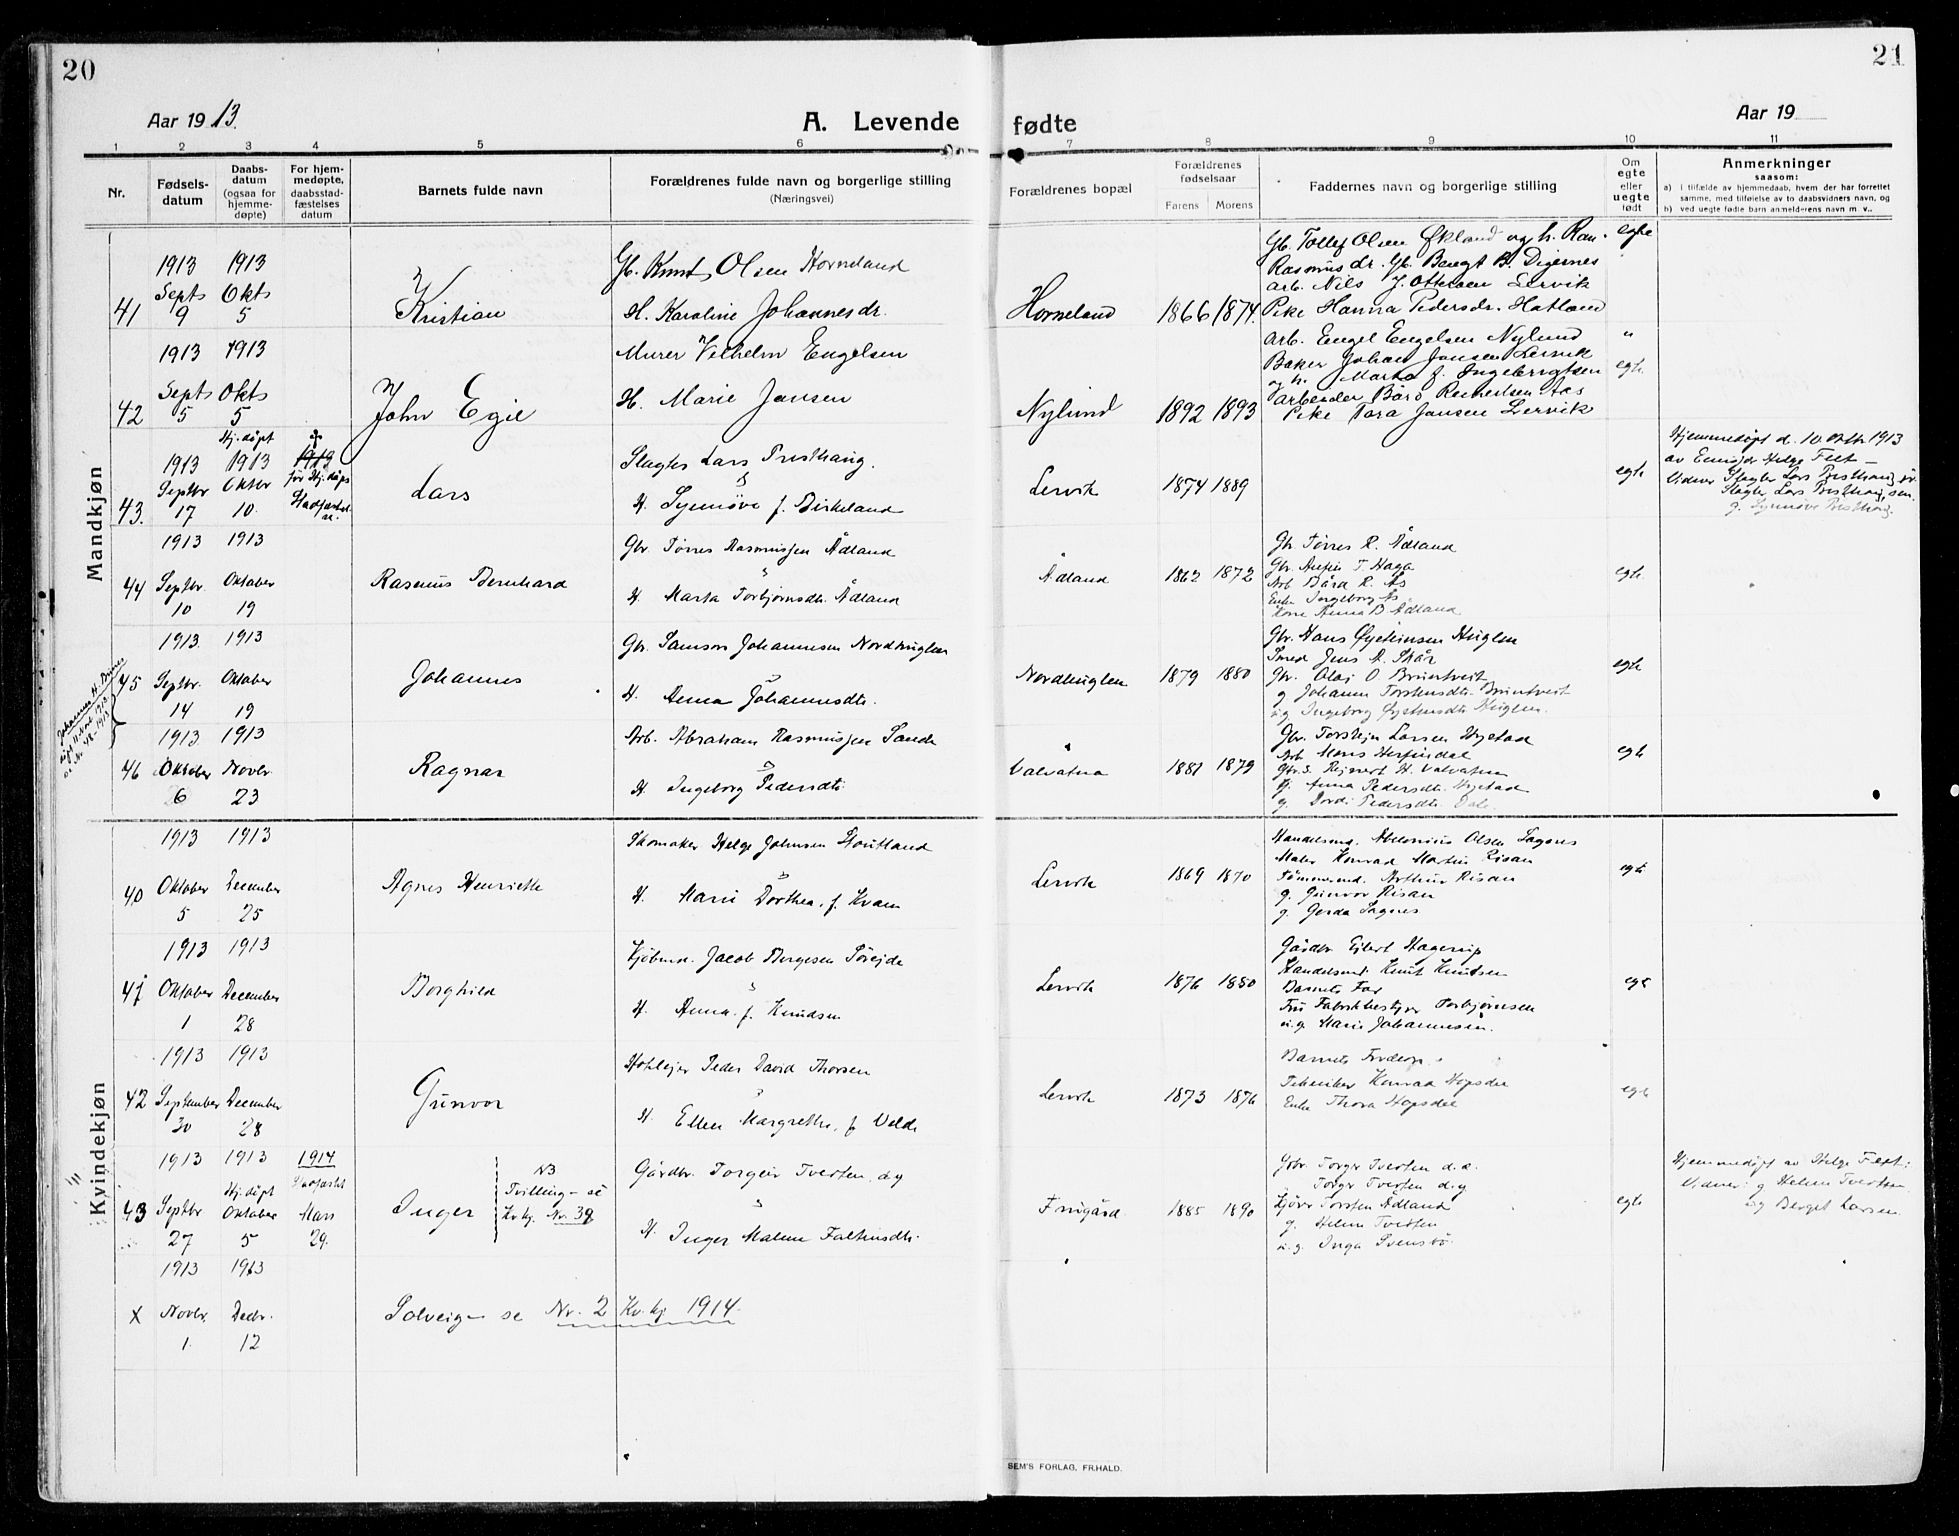 20
21
Aar 1913.
A. Levende fødte
Aar 19
1 2 3 4 5 6 7 8 9 10 11
Nr.
Fødselsdatum
Daabsdatum (ogsaa for hjemmedøpte)
For hjemmedøpte, daabsstadfæstelses datum
Barnets fulde navn
Forældrenes fulde navn og borgerlige stilling
(Næringsvei)
Forældrenes bopæl
Forældrenes fødselsaar
Farens Morens
Faddernes navn og borgerlige stilling
Om egte eller uegte født
Anmerkninger
saasom:
a) i tilfælde av hjemmedaab, hvem der har forrettet
samme, med tilføielse av to daabsvidners navn, og
b) ved uegte fødte barn anmelderens navn m. v..
Mandkjøn
1913 1913
Septs Okts
41 9 5
Kristian
Gb. Knut Olsen Horneland
H. Karoline Johannesdr.
Horneland 1866 1874.
Gb. Tollef Olsen Økland og h. Ran.
Rasmusdr. Gb. Bengt B. Digernes
arb. Nils J. Ottesen Lervik
Pike Hanna Pedersdr. Hatland
egte
1913 1913
Septs Okts
42 5 5
John Egil
Murer Vilhelm Engelsen
H. Marie Jansen
Nylund 1892 1893
Arb. Engel Engelsen Nylund
Baker Johan Jansen Lervik
og h. Marta f. Ingebrigtsen
Arbeider Bård Aas
Pike Tora Jansen Lervik
"
egte
Hj. døpt
1913 1913 1913
Septbr Oktbr
43. 17 10.
Lars
Slagter Lars Presthaug.
H. Synnøve f. Birkeland
Lervik 1874 1889
egte
Hjemmedøpt d. 10 oktb. 1913
av Helge Fett –
Vidner Slagter Lars Presthaug
Slagter Lars Presthaug, sen.
g. Synnøve Presthaug.
1913 1913
Septbr Oktober
44 10 19
Rasmus Bernhard
Gbr Tørres Rasmussen Ådland
H. Marta Torbjørnsdtr. Ådland
Ådland 1862 1872
Gb. Tørres R. Ådland
Gbr T. Haga
Arb. Bård R. Ås
Enke Ingeborg Ås
Anna B Ådland
egte
1913. 1913
Septbr. Oktober
45 14 19
Johannes
Gbr. Samson Johannessen Nordhuglen
H. Anna Johannesdtr.
Nordhuglen 1879 1880
Gbr. Hans Øysteinsen Huglen
Smed Jens A. Skår
Gbr. Olaj O Bruntveit
g Johanna Torstensdtr. Bruntveit
u.g Ingeborg Øysteinsdtr Huglen.
egte
1913. 1913
Oktober Novbr.
46 6 23
Ragnar
Arb. Abraham Rasmussen Sande
H. Ingeborg Pedersdtr.
Valvatna 1881 1879
Gbr. Torstejn Larsen Hystad
Arb Mons Herfindal
Gbr.s. Rejnert H. Valvatna
g. Anna Pedersdtr. Hystad
g. Dordi Pedersdtr. Dale.
egte
Kvindekjøn
1913 1913
Oktober December
40 5 25
Agnes Henriette
Skomaker Helge Johnsen Stoutland
H. Marie Dorthea, f. Kvam
Lervik 1869 1870
Handelsmd. Abelonius Olsen Sagnes
Maler Konrad Martin Risan
Tømmermd. Arthur Risan
g. Gunvor Risan
g. Gerda Sagnes
egte
1913 1913
Oktober December
41 1 28
Borghild
Kjøbmd. Jacob Børgesen Tørejde
H. Anna f. Knudsen
Lervik 1876 1880
Gårdbr Ejlert Hagerup
Handelsmd. Knut Knutsen
Barnets Far
Fru Fabrikbestyrer Torbjørnsen
u.g. Marie Johannesen.
egte
1913 1913
September December
42 30 28
Gunvor
Hotelejer Peder David Thorsen
H. Ellen Margrethe, f Velde
Lervik 1873 1876
Barnets
Tekniker Konrad Hopsdal
Enke Thora Hopsdal
egte
1913 1913 1914
Hj. døpt Stadfæstet
Septbr Oktober Mars
43 27 5 29.
Inger
NB
Tvilling – se
Kvkj. Nr. 39
Gårdbr. Torgeir Tveiten, d.y
H. Inger Malene Faltinsdtr.
1885 1890
Gbr. Torger Tveiten d.e.
Torger Tveiten d.y
Torsten Ådland
g. Helene Tveiten
u.g. Inga Svensbø.
egte
Hjemmedøpt av Helge Fett;
Vidner: g Helene Tveiten
og Berget Larsen
1913 1913
X Novbr. Decbr.
1. 12
Solveig – se Nr. 2 Kv.kj. 1914.
SEM'S FORLAG, FR.HALD.